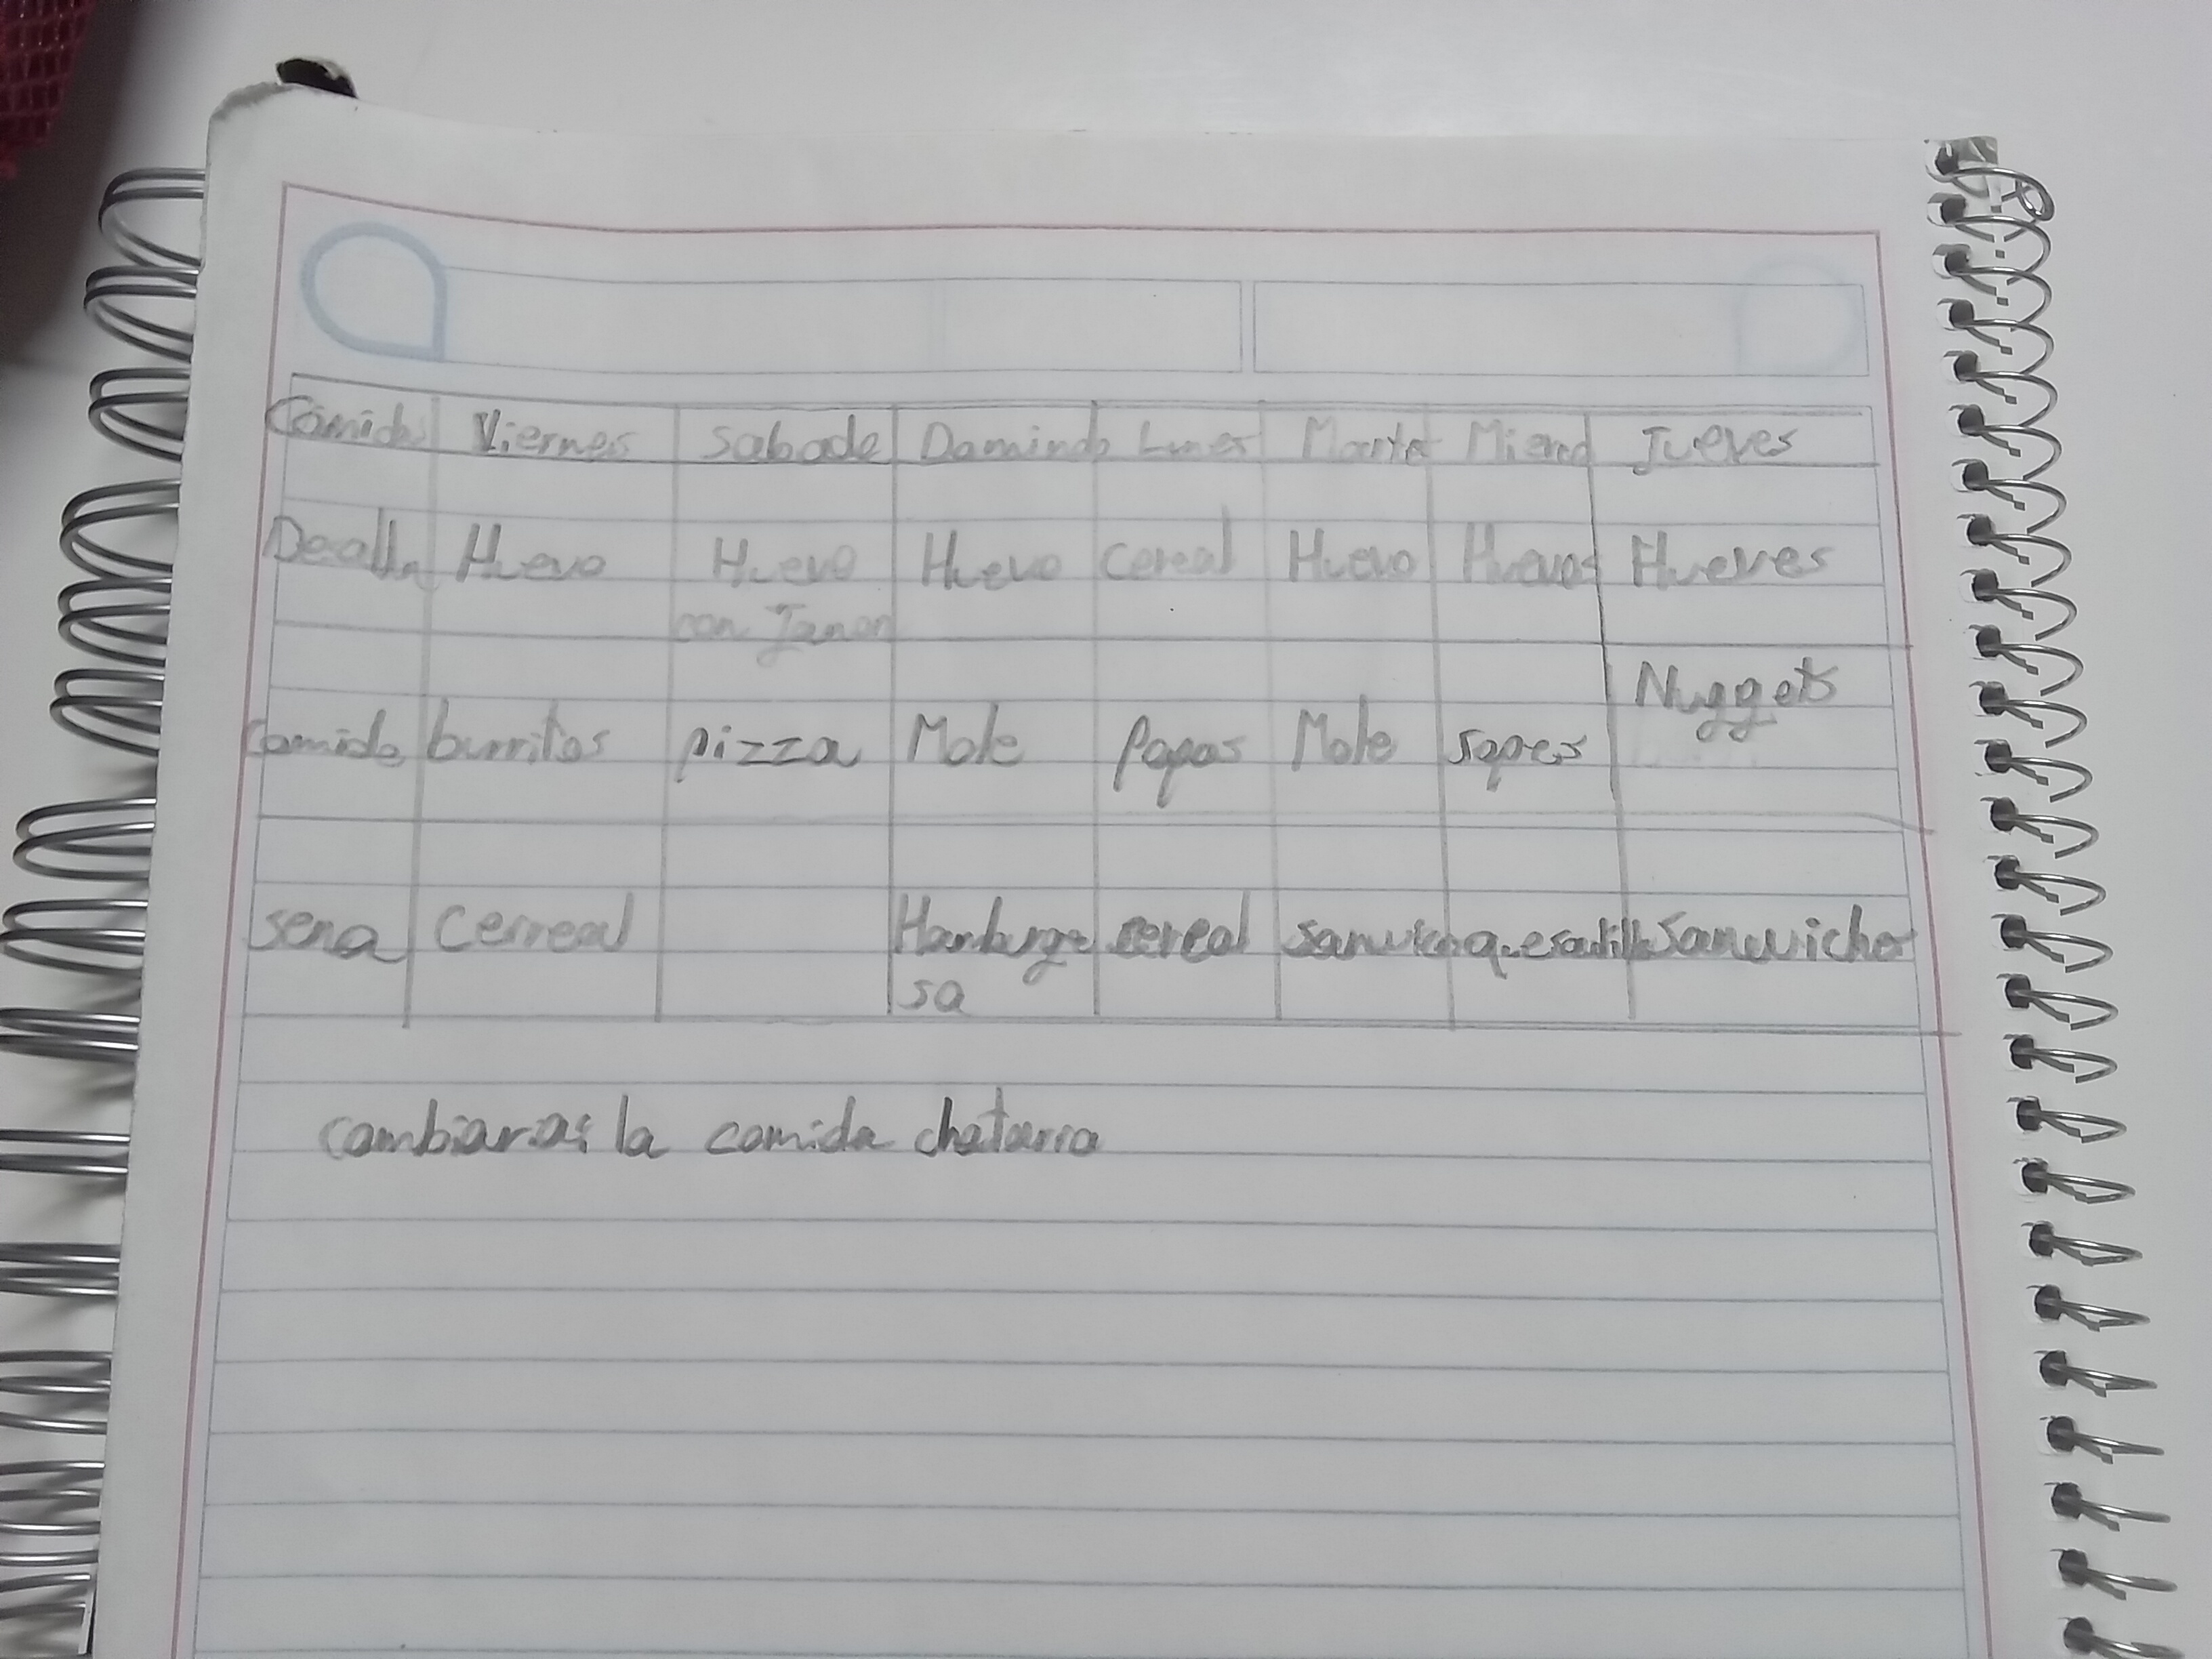 Comida Viernes Sabado Domindo Lunes Marte Mierco Jueves
Huevo Huevo Huevo cereal Huevo Huevos Hueves
con Jamon
Nuggets
Comida burritos pizza Mole Papas Mole sopes
sena Cerreal Hamburge cereal sanwich quesadilla sanwicho
sa
cambiaras la comida chatarra